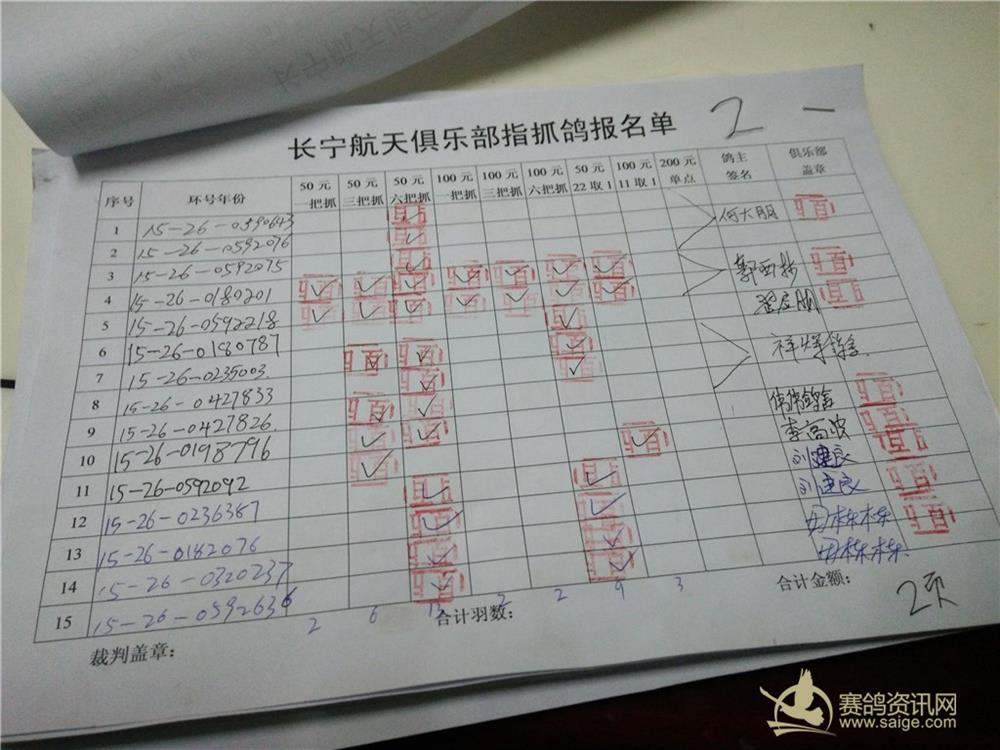 2 一
长宁航天俱乐部指抓鸽报名单
序号 环号年份 50元一把抓 50元三把抓 50元六把抓 100元一把抓 100元三把抓 100元六把抓 50元22取1 100元11取1 200元单点 鸽主签名 俱乐部盖章
1 15-26-0590643
2 15-26-0592076 何大朋
3 15-26-0592075
4 15-26-0180201 郭西林
5 15-26-0592218
6 15-26-0180787
7 15-26-0235003 祥辉鸽舍
8 15-26-0427833 伟伟鸽舍
9 15-26-0427826 李高波
10 15-26-0198796 刘建良
11 15-26-0592092 刘建良
12 15-26-0236387
13 15-26-0182076
14 15-26-0320237
15 15-26-0592636
2 6 13 2 2 9 3
裁判盖章： 合计羽数： 合计金额：
2页
赛鸽资讯网
www.saige.com